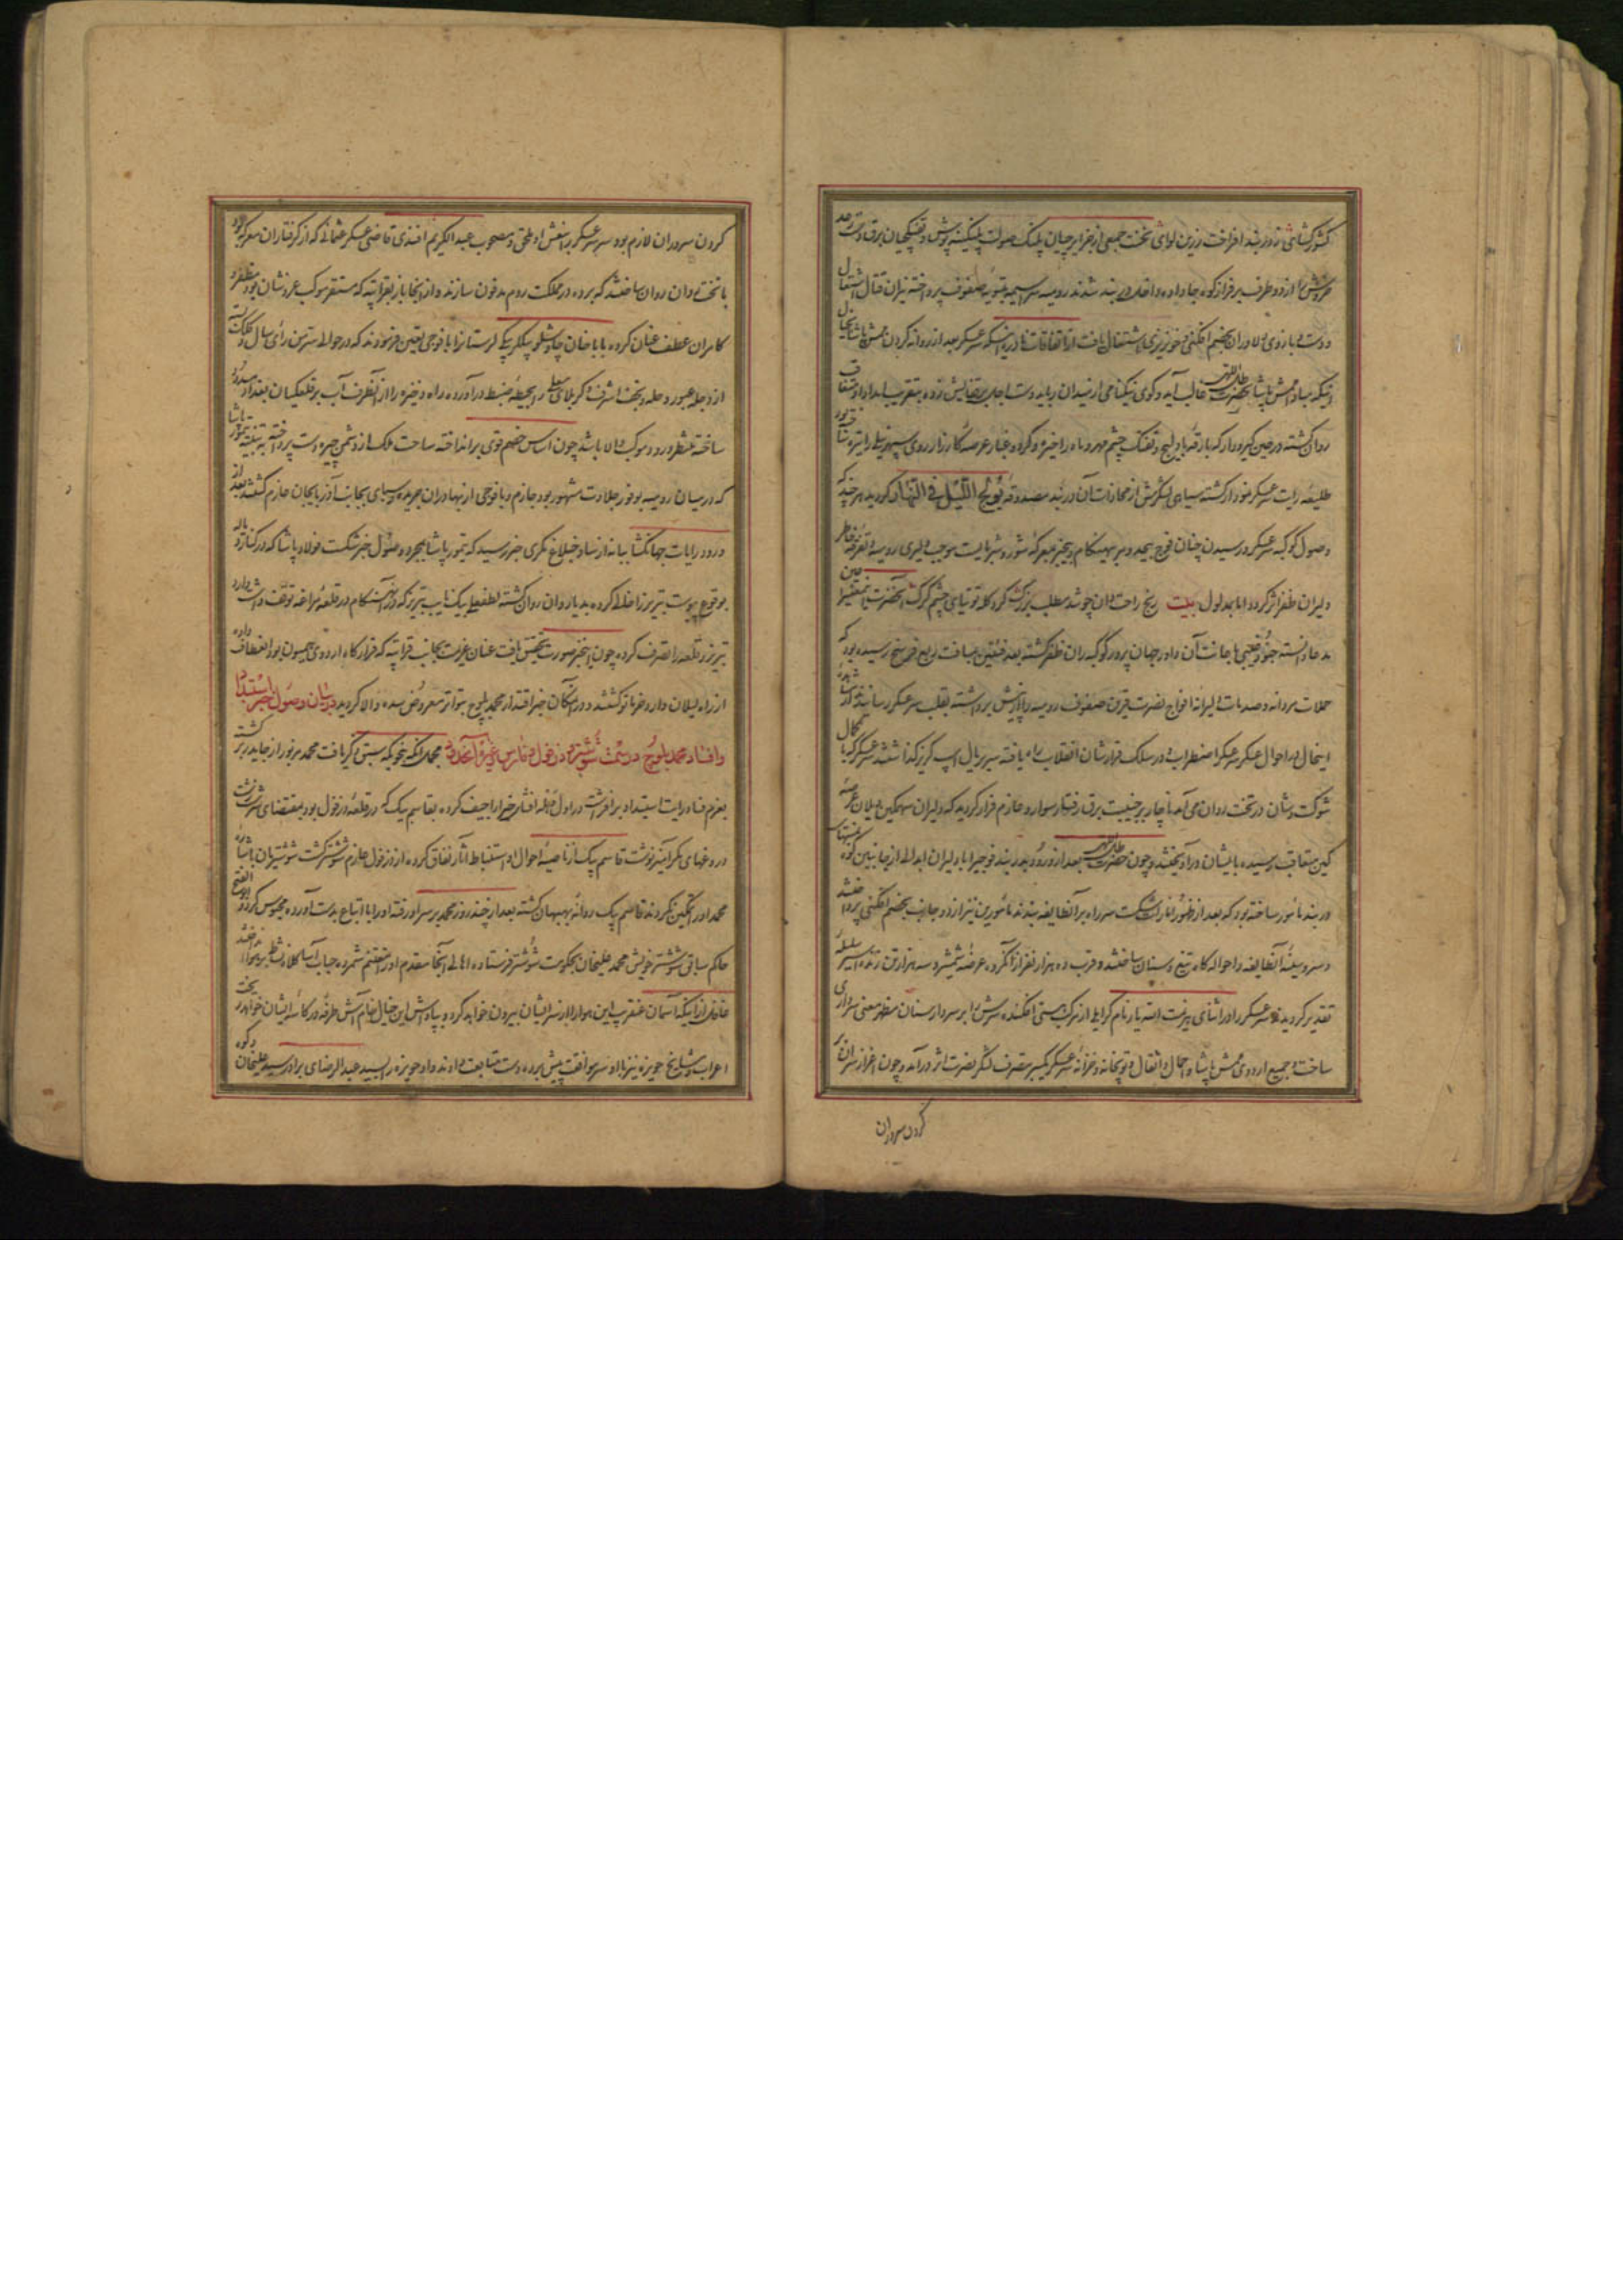 کشورکشای زوربند افراخت زرین لوای نخست جمعی از جزایرچیان پلنک صولت پلنکینه پوش و تفنکچیان برق دست رعد
خروش را از دو طرف بر فراز کوه جا داده داخل دربند شدند رومیه سراسیمه بتسویه صفوف پرداخته نیران قتال اشتعال
و دست و بازوی دلاوران بخصم افکنی و خونریزی اشتغال یافت از اتفاقات نادره اینکه سرعسکر بعد از روانه کردن ممش پاشا بخیال
اینکه مبادا ممش پاشا بحضرت ظل اللهی غالب آید و کوی نیکنامی از میدان رباید دست اجلش قفایش زده بتقریب امداد او متعاقب
روان کشته در حین کیرودار که بارقه بادلیج و تفنک چشم مهر و ماه را خیره و کرد و غبار عرصه کارزار روی سپهر نیلی را تیره ساخته بود
طلیعه رایت سرعسکر نمودار کشته سیاهی لشکرش از محاذات آن دربند مصدوقه یولج اللیل فی النهار کردید هر چند که
وصول کوکبه سرعسکر و رسیدن چنان فوج بیحد و مر بهنکام و بیخبر بمعرکه شور و شر بایست موجب دلیری رومیه و تفرقه خاطر
دلیران ظفر اثر کردد اما بمدلول بیت رنج راحت دان چو شد مطلب بزرک کرد کله توتیای چشم کرک آنحضرت اینمعنی را عین
مدعا دانسته جنود غیبی باعانت آن داور جهان پرور کوکبه ران ظفر کشته بعد فئتین بمسافت ربع فرسخ رسیده بود که
حملات مردانه و صدمات دلیرانه افواج نصرت قرین صفوف رومیه را از پیش برداشته بقلب سرعسکر رسانیدند از مشاهده
اینحال در احوال عسکر و سرعسکر اضطراب و در سلک قرارشان انقلاب راه یافته سر بر یال اسب کریز کذاشتند سرعسکر که با کمال
شوکت و شان در تخت روان می آمد ناچار بر جنیبت برق رفتار سوار و عازم فرار کردید که دلیران سهمکین و یلان عرصه
کین متعاقب رسیده بایشان درآویختند و چون حضرت ظل اللهی بعد از ورود بدربند فوجی را با دلیران ابدالی از جانبین کوه بمنتهای
دربند مأمور ساخته بود که بعد از ظهور آثار شکست سر راه بر آنطایفه بندند مأمورین نیز از دو جانب بخصم افکنی پرداختند
و سر و سینه آنطایفه را حواله کاه تیغ و سنان ساختند و قرب ده هزار نفر از آنکروه عرضه شمشیر و سه هزار تن زنده اسیر سلسله
تقدیر کردید و سرعسکر را در اثنای هزیمت الله یار نام کرایلی از مرکب هستی افکنده سرش را بر سردار سنان مظهر معنی سرداری
ساخت و جمیع اردوی ممش پاشا و احمال و اثقال و توپخانه و خزانه سرعسکر یکسر بتصرف لشکر نصرت اثر درآمد و چون اعزاز سران و
کردن سروران
کردن سروران لازم بود سر سرعسکر را بنعش او ملحق و مصحوب عبدالکریم افندی قاضی عسکر عثمانی که از کرفتاران معرکه بود
با تخت روان روان ساختند که برده در مملکت روم مدفون سازند و از آنجا باز بقراتپه که مستقر موکب عز و شان بود مظفر و
کامران عطف عنان کرده بابا خان چاوشلو بیکلربیکی لرستان را با فوجی تعیین فرمودند که در حوالی سرمن رأی سال و کلک بسته
از دجله عبور و حله و نجف اشرف و کربلای معلی را بحیطه ضبط درآورده راه ذخیره را از آنطرف آب بر قلعکیان بغداد مسدود
ساخته منتظر ورود موکب والا باشد چون اساس خصم قوی برانداخته ساحت ملک از دشمن چیره دست پرداخته به تنبیه تیمور پاشا
که در میان رومیه بوفور جلادت مشهور بود جازم و با فوجی از بهادران جریده و سبای بجانب آذربایجان عازم کشتند بعد از
ورود رایات جهانکشا بیانه از نساوجبلاغ مکری خبر رسید که تیمور پاشا بمجرد وصول خبر شکست فولاد پاشا که در کنار دیاله
بوقوع پیوست تبریز را خالی کرده بدیار وان روان کشته لطفعلی بیک نایب تبریز که در آن هنکام در قلعه مراغه توقف داشت وارد
تبریز و قلعه را تصرف کرده چون اینخبر صورت تحقیق یافت عنان عزیمت بجانب قراتپه که قرارکاه اردوی همیون بود انعطاف داده
از راه لیلان وارد خرماتو کشتند و در آنمکان خبر اقتدار محمد بلوچ بتواتر معروض سده والا کردید در بیان وصول خبر استیلا
و افساد محمد بلوچ در سمت شوشتر و دزفول و فارس و غیر آن حدود مجملا آنکه بنحویکه سبق ذکر یافت محمد مزبور از جایدر برکشت
بعزم فساد رایت استبداد برافرشته در اول وهله افشار خیر را جیف کرده بقاسم بیک که در قلعه دزفول بود بمقتضای سرشت زشت
دروغهای مکرآمیز نوشت قاسم بیک از ناصیه احوال او استنباط آثار نفاق کرده از دزفول عازم شوشتر کشت شوشتریان باشاره
محمد او را تمکین نکردند قاسم بیک روانه بهبهان کشته بعد از چند روز محمد بر سر او رفته او را با اتباع بدست آورده محبوس کرد و ابوالفتح
حاکم سابق شوشتر خویش محمد علیخان بحکومت شوشتر فرستاده اهالی آنجا مقدم او را مغتنم شمرده حباب آسا کلاه نشاط بر هوا انداختند
غافل از اینکه آسمان عنقریب این هوا را از سر ایشان بیرون خواهد کرد و بپاداش این خیال خام آش طرفه در کاسه ایشان خواهد ریخت
اعراب و مشایخ حویزه نیز با او سر موافقت پیش برده دست متابعت دادند و او حویزه را بسید عبدالرضای برادر سید علیخان داده و کوه